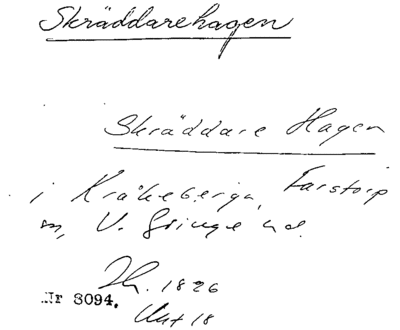 Skräddarehagen
Skräddare Hagen
i Kråkeberga, Farstorp
sn, V. Göinge hd.
Jb. 1826
Nr 8094.
Urt 18